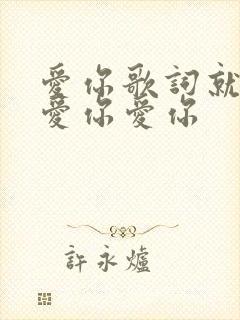 愛你歌詞就
愛你愛你
許永爐